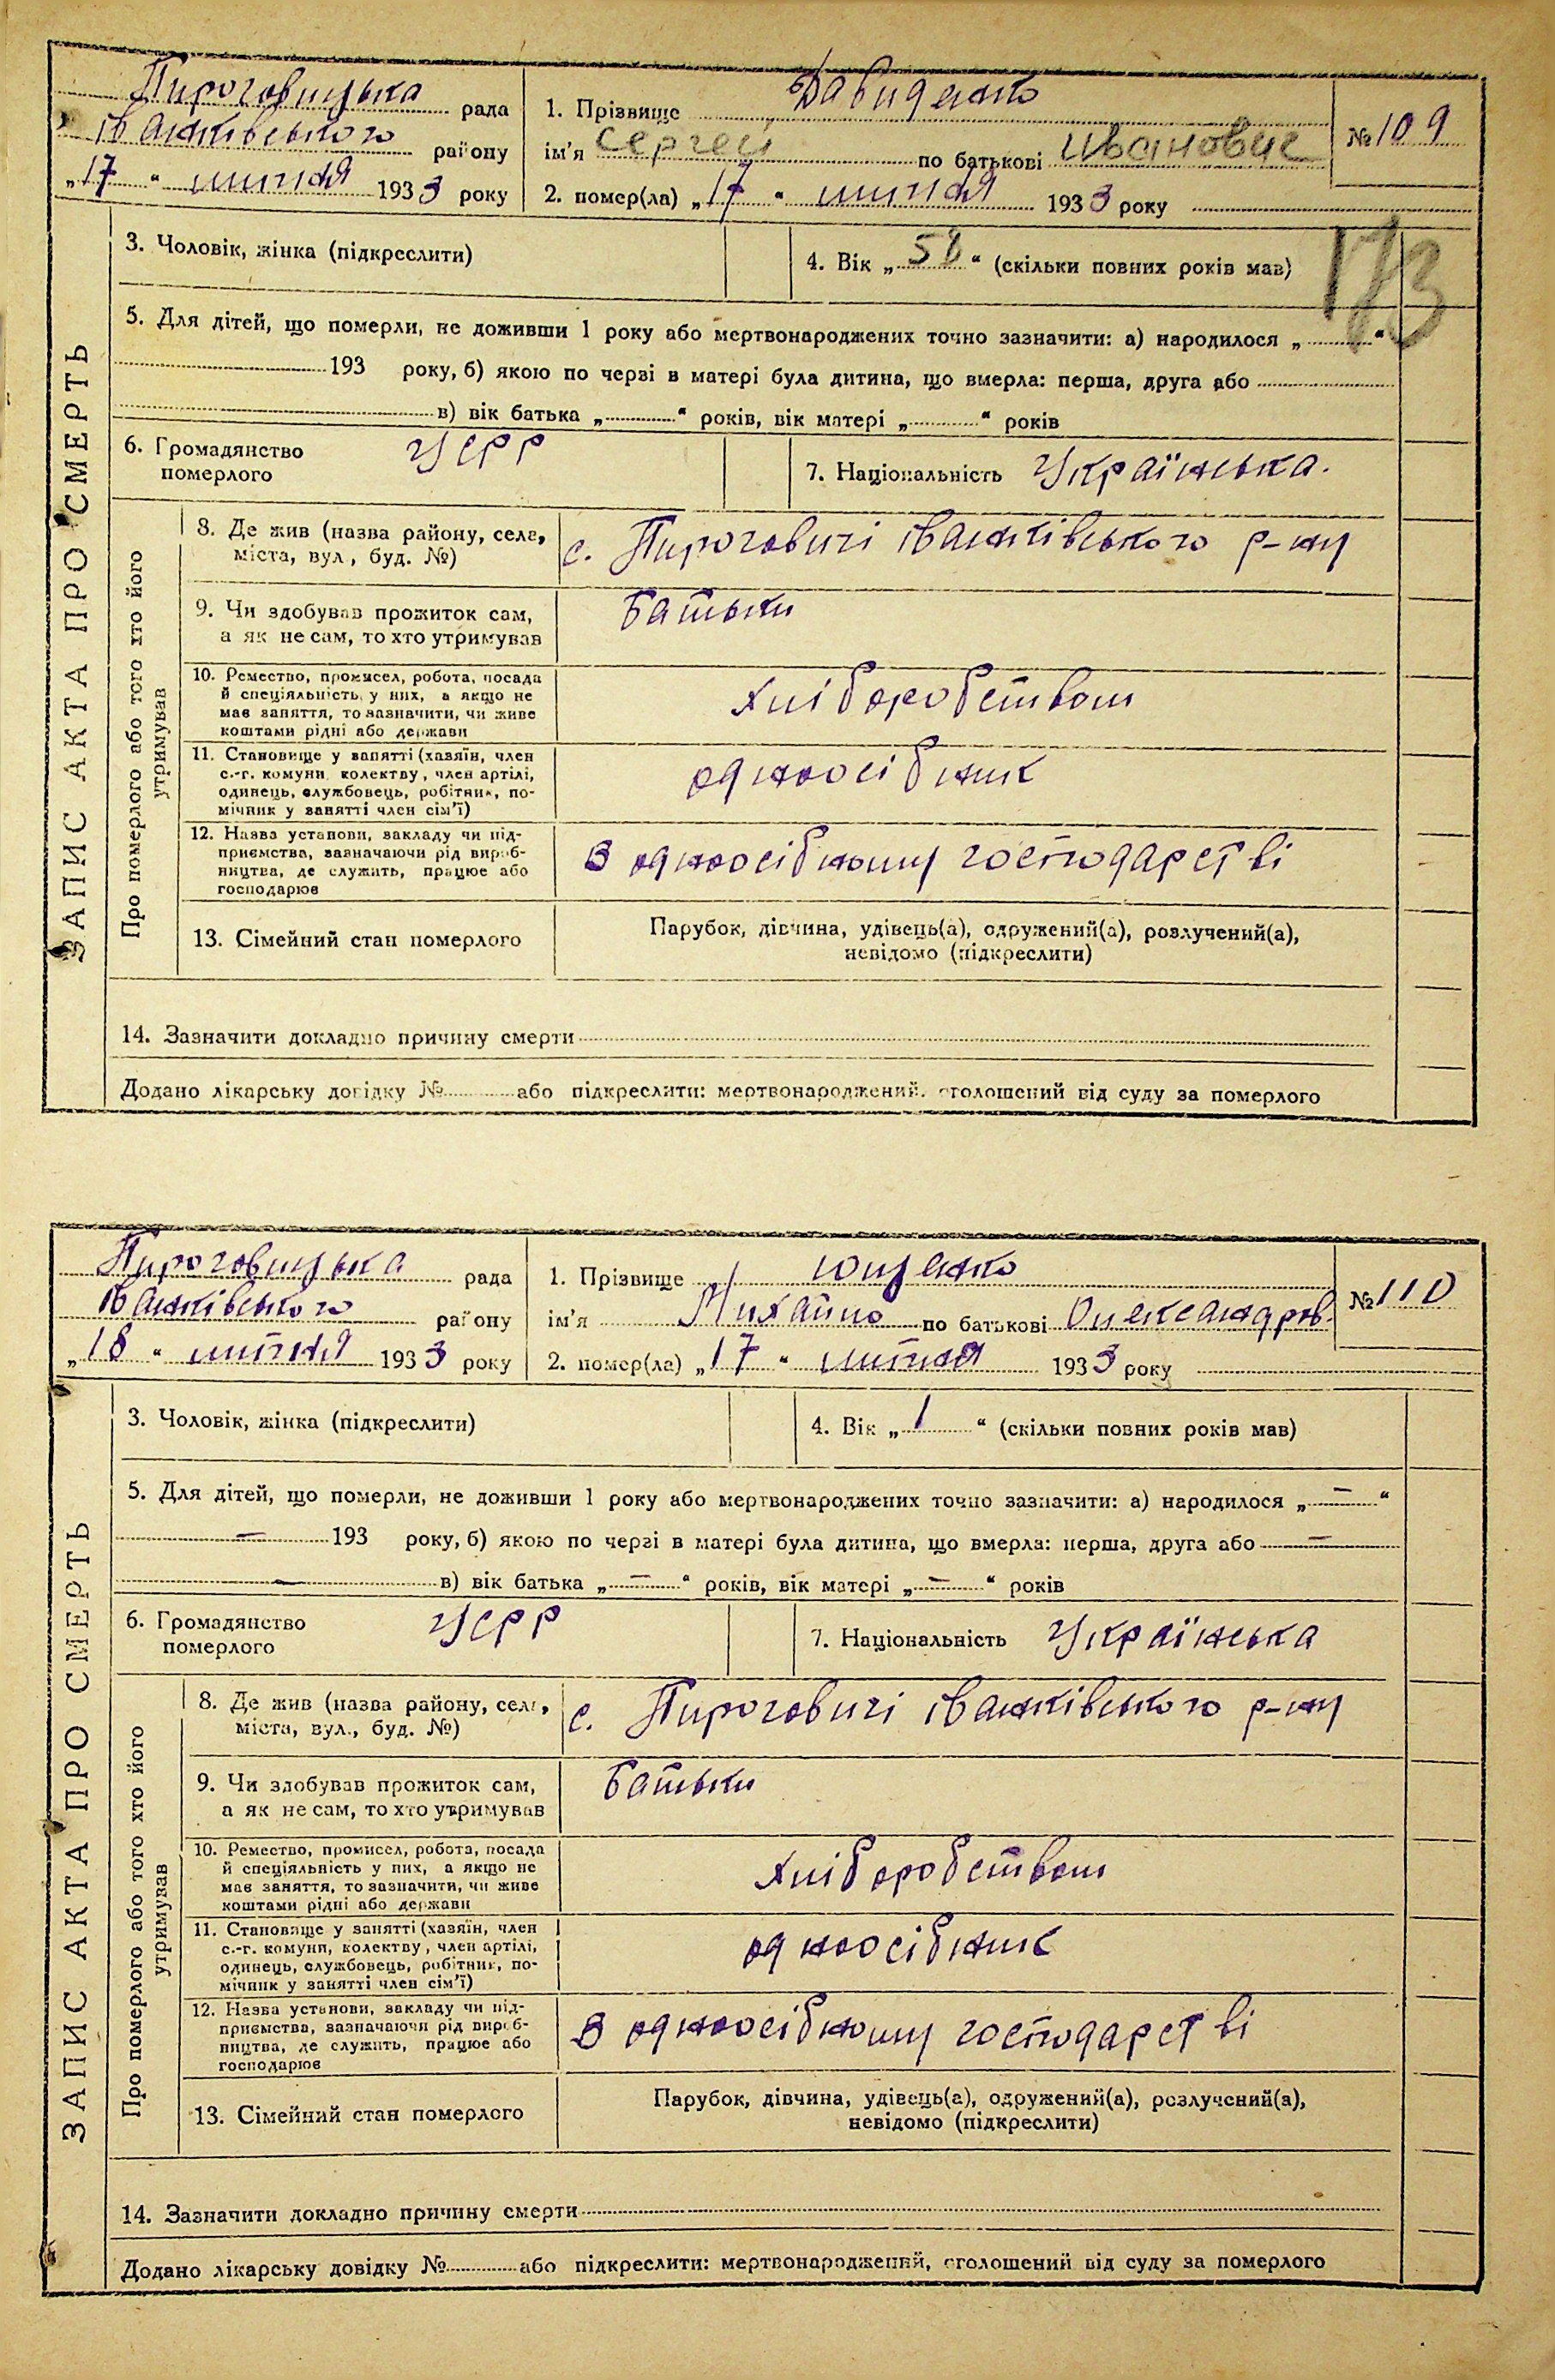 Пироговицька рада
Іванківського району
„17“ липня 1933 року
1. Прізвище Давиденко
ім'я Сергей по батькові Иванович
2. помер(ла) „17“ липня 1933 року
№ 109
173
ЗАПИС АКТА ПРО СМЕРТЬ
3. Чоловік, жінка (підкреслити)
4. Вік „58“ (скільки повних років мав)
5. Для дітей, що померли, не доживши 1 року або мертвонароджених точно зазначити: а) народилося „ “
193 року, б) якою по черзі в матері була дитина, що вмерла: перша, друга або
в) вік батька „ “ років, вік матері „ “ років
6. Громадянство
померлого
УСРР
7. Національність Українська.
Про померлого або того хто його
утримував
8. Де жив (назва району, села,
міста, вул, буд. №)
с. Пироговичі Іванківського р-ну
9. Чи здобував прожиток сам,
а як не сам, то хто утримував
Батьки
10. Ремество, промисел, робота, посада
й спеціяльність у них, а якщо не
має заняття, то зазначити, чи живе
коштами рідні або держави
хліборобством
11. Становище у занятті (хазяїн, член
с.-г. комуни, колектву, член артілі,
одинець, службовець, робітник, по-
мічник у занятті член сім'ї)
одноосібник
12. Назва установи, закладу чи під-
приємства, зазначаючи рід вироб-
ництва, де служить, працює або
господарює
В одноосібному господарстві
13. Сімейний стан померлого
Парубок, дівчина, удівець(а), одружений(а), розлучений(а),
невідомо (підкреслити)
14. Зазначити докладно причину смерти
Додано лікарську довідку № або підкреслити: мертвонароджений, оголошений від суду за померлого
Пироговицька рада
Іванківського району
„18“ липня 1933 року
1. Прізвище Ющенко
ім'я Михайло по батькові Олександров.
2. помер(ла) „17“ липня 1933 року
№ 110
ЗАПИС АКТА ПРО СМЕРТЬ
3. Чоловік, жінка (підкреслити)
4. Вік „1“ (скільки повних років мав)
5. Для дітей, що померли, не доживши 1 року або мертвонароджених точно зазначити: а) народилося „—“
— 193 року, б) якою по черзі в матері була дитина, що вмерла: перша, друга або —
— в) вік батька „—“ років, вік матері „—“ років
6. Громадянство
померлого
УСРР
7. Національність Українська
Про померлого або того хто його
утримував
8. Де жив (назва району, села,
міста, вул., буд. №)
с. Пироговичі Іванківського р-ну
9. Чи здобував прожиток сам,
а як не сам, то хто утримував
Батьки
10. Ремество, промисел, робота, посада
й спеціяльність у них, а якщо не
має заняття, то зазначити, чи живе
коштами рідні або держави
хліборобством
11. Становище у занятті (хазяїн, член
с.-г. комуни, колектву, член артілі,
одинець, службовець, робітник, по-
мічник у занятті член сім'ї)
одноосібник
12. Назва установи, закладу чи під-
приємства, зазначаючи рід вироб-
ництва, де служить, працює або
господарює
В одноосібному господарстві
13. Сімейний стан померлого
Парубок, дівчина, удівець(а), одружений(а), розлучений(а),
невідомо (підкреслити)
14. Зазначити докладно причину смерти
Додано лікарську довідку № або підкреслити: мертвонароджений, оголошений від суду за померлого